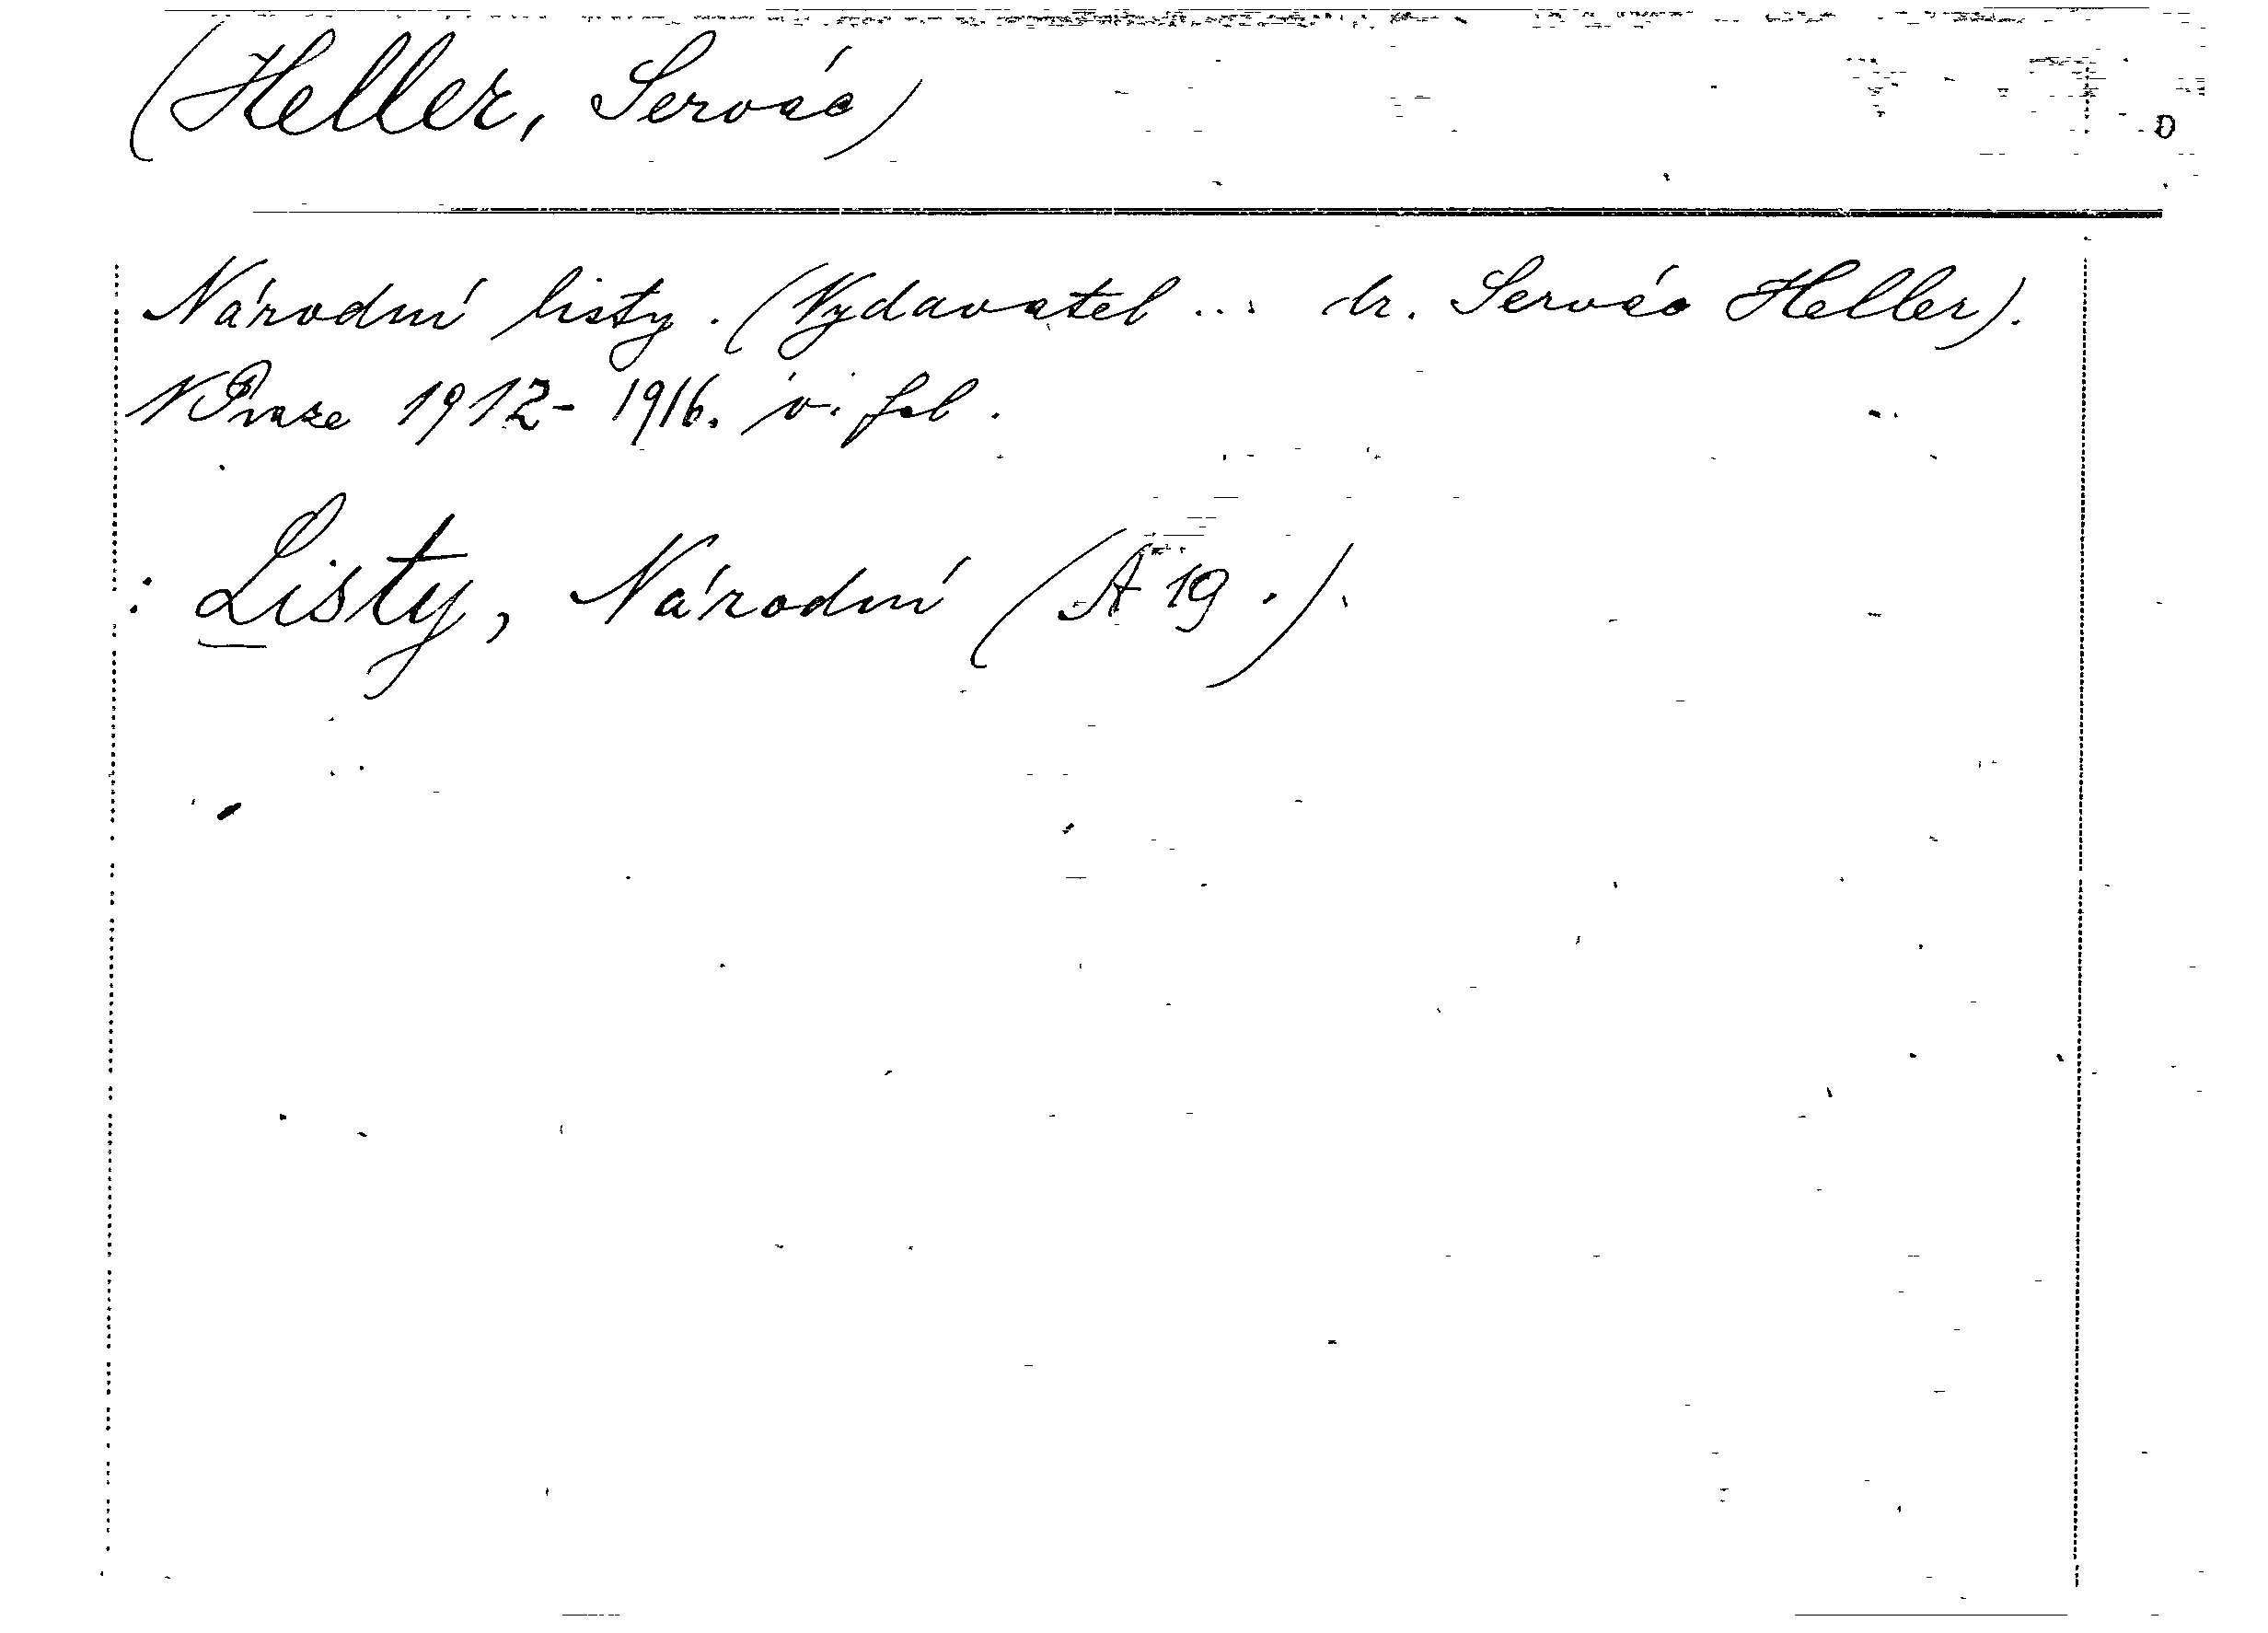 (Heller, Servác)
Národní listy. (Vydavatel ... dr. Servác Heller).
V Praze 1912-1916. v. fol.
: Listy, Národní (A 19.).